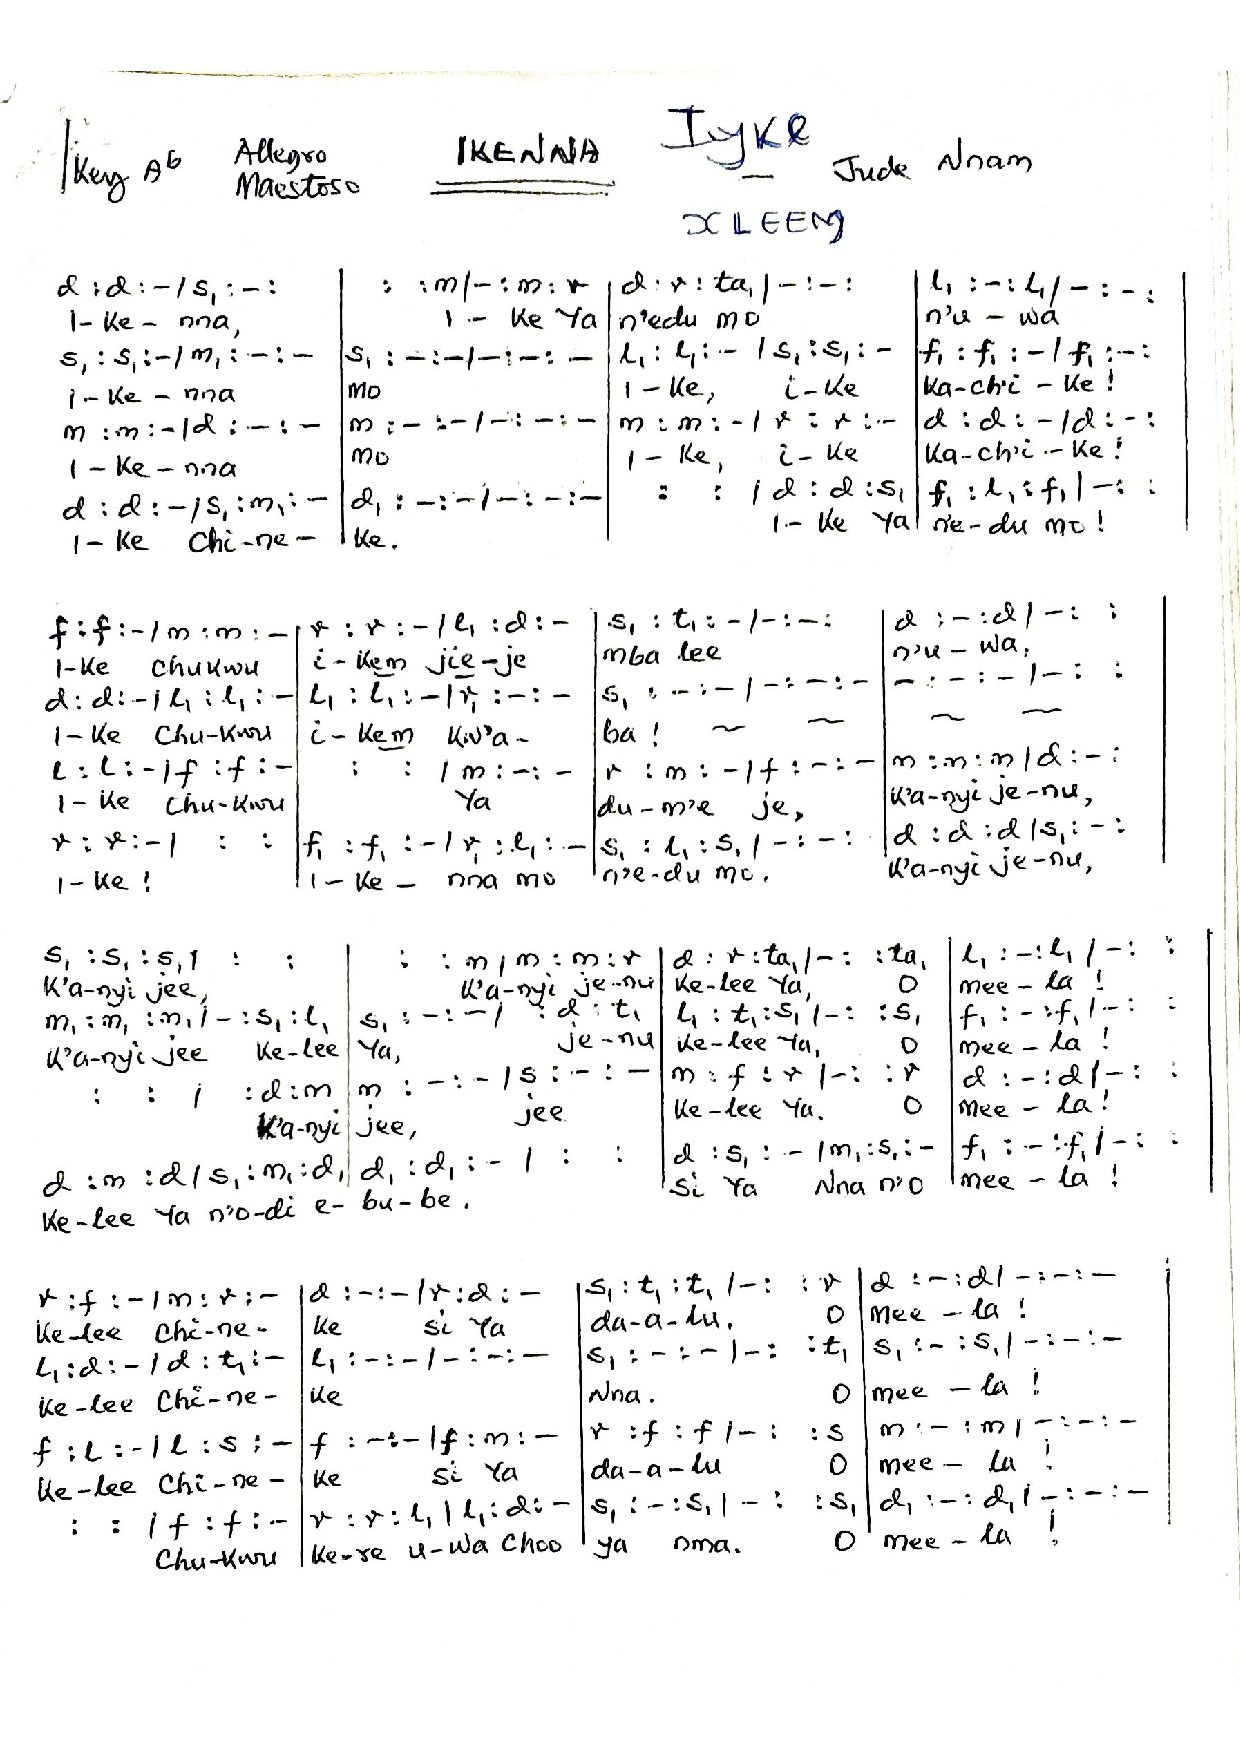 Key Ab Allegro Maestoso IKENNA Iyke Jude Nnam
XLEEM
d : d : - / s₁ : - : | : : m / - : m : r | d : r : ta₁ / - : - : | l₁ : - : l₁ / - : - :
I - Ke - nna, | I - Ke Ya | n'edu mo | n'u - wa
s₁ : s₁ : - / m₁ : - : - | s₁ : - : - / - : - : - | l₁ : l₁ : - / s₁ : s₁ : - | f₁ : f₁ : - / f₁ : - :
i - Ke - nna | Mo | I - Ke, i - Ke | Ka-ch'i - Ke !
m : m : - / d : - : - | m : - : - / - : - : - | m : m : - / r : r : - | d : d : - / d : - :
I - Ke - nna | Mo | I - Ke, i - Ke | Ka-ch'i - Ke !
d : d : - / s₁ : m₁ : - | d₁ : - : - / - : - : - | : : / d : d : s₁ | f₁ : l₁ : f₁ / - : :
I - Ke Chi-ne - | Ke. | I - Ke Ya | n'e-du mo !
f : f : - / m : m : - | r : r : - / l₁ : d : - | s₁ : t₁ : - / - : - : | d : - : d / - : :
I-Ke Chukwu | i - Kem jie-je | mba lee | n'u - wa,
d : d : - / l₁ : l₁ : - | l₁ : l₁ : - / r₁ : - : - | s₁ : - : - / - : - : - | - : - : - / - : :
I - Ke Chu-Kwu | i - Kem Kw'a- | ba ! ~ ~ | ~ ~
l : l : - / f : f : - | : : / m : - : - | r : m : - / f : - : - | m : m : m / d : - :
I - Ke Chu-Kwu | Ya | du - m'e je, | K'a-nyi je-nu,
r : r : - / : : | f₁ : f₁ : - / r₁ : l₁ : - | s₁ : l₁ : s₁ / - : - : | d : d : d / s₁ : - :
I - Ke ! | I - Ke - nna mo | n'e-du mo. | K'a-nyi je-nu,
s₁ : s₁ : s₁ / : : | : : m / m : m : r | d : r : ta₁ / - : : ta₁ | l₁ : - : l₁ / - : :
K'a-nyi jee, | K'a-nyi je-nu | Ke-lee Ya, O | mee - la !
m₁ : m₁ : m₁ / - : s₁ : l₁ | s₁ : - : - / : d : t₁ | l₁ : t₁ : s₁ / - : : s₁ | f₁ : - : f₁ / - : :
K'a-nyi jee Ke-lee | Ya, je-nu | Ke-lee Ya, O | mee - la !
: : / : d : m | m : - : - / s : - : - | m : f : r / - : : r | d : - : d / - : :
K'a-nyi | jee, jee | Ke-lee Ya. O | Mee - la !
d : m : d / s₁ : m₁ : d₁ | d₁ : d₁ : - / : : | d : s₁ : - / m₁ : s₁ : - | f₁ : - : f₁ / - : :
Ke-lee Ya n'o-di e- | bu-be. | Si Ya Nna n'O | mee - la !
r : f : - / m : r : - | d : - : - / r : d : - | s₁ : t₁ : t₁ / - : : r | d : - : d / - : - : -
Ke-lee Chi-ne- | Ke si Ya | da-a-lu. O | Mee - la !
l₁ : d : - / d : t₁ : - | l₁ : - : - / - : - : - | s₁ : - : - / - : : t₁ | s₁ : - : s₁ / - : - : -
Ke-lee Chi-ne- | Ke | Nna. O | mee - la !
f : l : - / l : s : - | f : - : - / f : m : - | r : f : f / - : : s | m : - : m / - : - : -
Ke-lee Chi-ne - | Ke si Ya | da-a-lu O | mee - la !
: : / f : f : - | r : r : l₁ / l₁ : d : - | s₁ : - : s₁ / - : : s₁ | d₁ : - : d₁ / - : - : -
Chu-Kwu | Ke-re u-wa Choo | ya nma. O | mee - la !